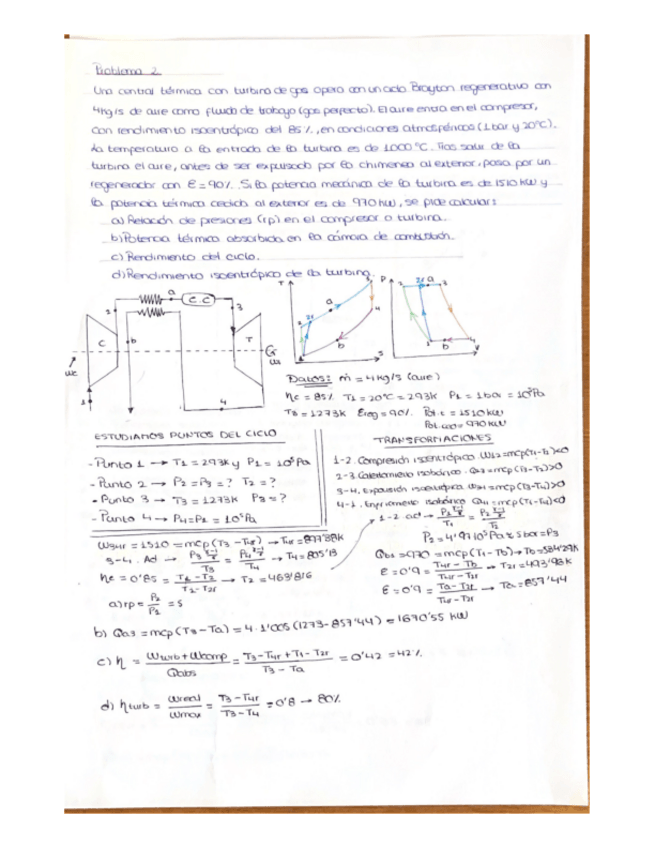 Problema 2
Una central térmica con turbina de gas opera con un ciclo Brayton regenerativo con
4kg/s de aire como fluido de trabajo (gas perfecto). El aire entra en el compresor,
con rendimiento isoentrópico del 85%, en condiciones atmosféricas (1bar y 20°C).
La temperatura a la entrada de la turbina es de 1000°C. Tras salir de la
turbina el aire, antes de ser expulsado por la chimenea al exterior, pasa por un
regenerador con ε=90%. Si la potencia mecánica de la turbina es de 1510kW y
la potencia térmica cedida al exterior es de 970kW, se pide calcular:
a) Relación de presiones (rp) en el compresor o turbina.
b) Potencia térmica absorbida en la cámara de combustión.
c) Rendimiento del ciclo.
d) Rendimiento isoentrópico de la turbina.
a
C.C
2
3
C
b
T
1
4
T
a
b
S
P
a
3
b
Datos: ṁ = 4kg/s (aire)
ηc = 85% T1 = 20°C = 293K P1 = 1bar = 10⁵Pa
T3 = 1273K Ereg = 90% Pot.t = 1510kW
Pot.ced = 970kW
ESTUDIAMOS PUNTOS DEL CICLO
- Punto 1 → T1 = 293K y P1 = 10⁵Pa
- Punto 2 → P2 = P3 = ? T2 = ?
- Punto 3 → T3 = 1273K P3 = ?
- Punto 4 → P4 = P1 = 10⁵Pa
TRANSFORMACIONES
1-2. Compresión isoentrópica. W12 = mcp(T1-T2)<0
2-3. Calentamiento isobárico. Q23 = mcp(T3-T2)>0
3-4. Expansión isoentrópica W34 = mcp(T3-T4)>0
4-1. Enfriamiento isobárico Q41 = mcp(T1-T4)<0
W34r = 1510 = mcp(T3-T4r) → T4r = 897'38K
3-4. Ad →
→ T4 = 805'13
ηc = 0'85 = T1-T2 / T2-T2r → T2 = 463'816
a) rp = P2/P1 = 5
1-2. ad →
P2 = 4'97·10⁵Pa ≈ 5bar = P3
Qb1 = 970 = mcp(T1-Tb) → Tb = 534'29K
ε = 0'9 = T4r-Tb / T4r-T2r → T2r = 493'98K
ε = 0'9 = Ta-T2r / T4r-T2r → Ta = 857'44
b) Qa3 = mcp(T3-Ta) = 4·1'005(1273-857'44) = 1670'55 kW
c) η = Wturb+Wcomp / Qabs = T3-T4r+T1-T2r / T3-Ta = 0'42 = 42%
d) ηturb = Wreal / Wmax = T3-T4r / T3-T4 = 0'8 → 80%